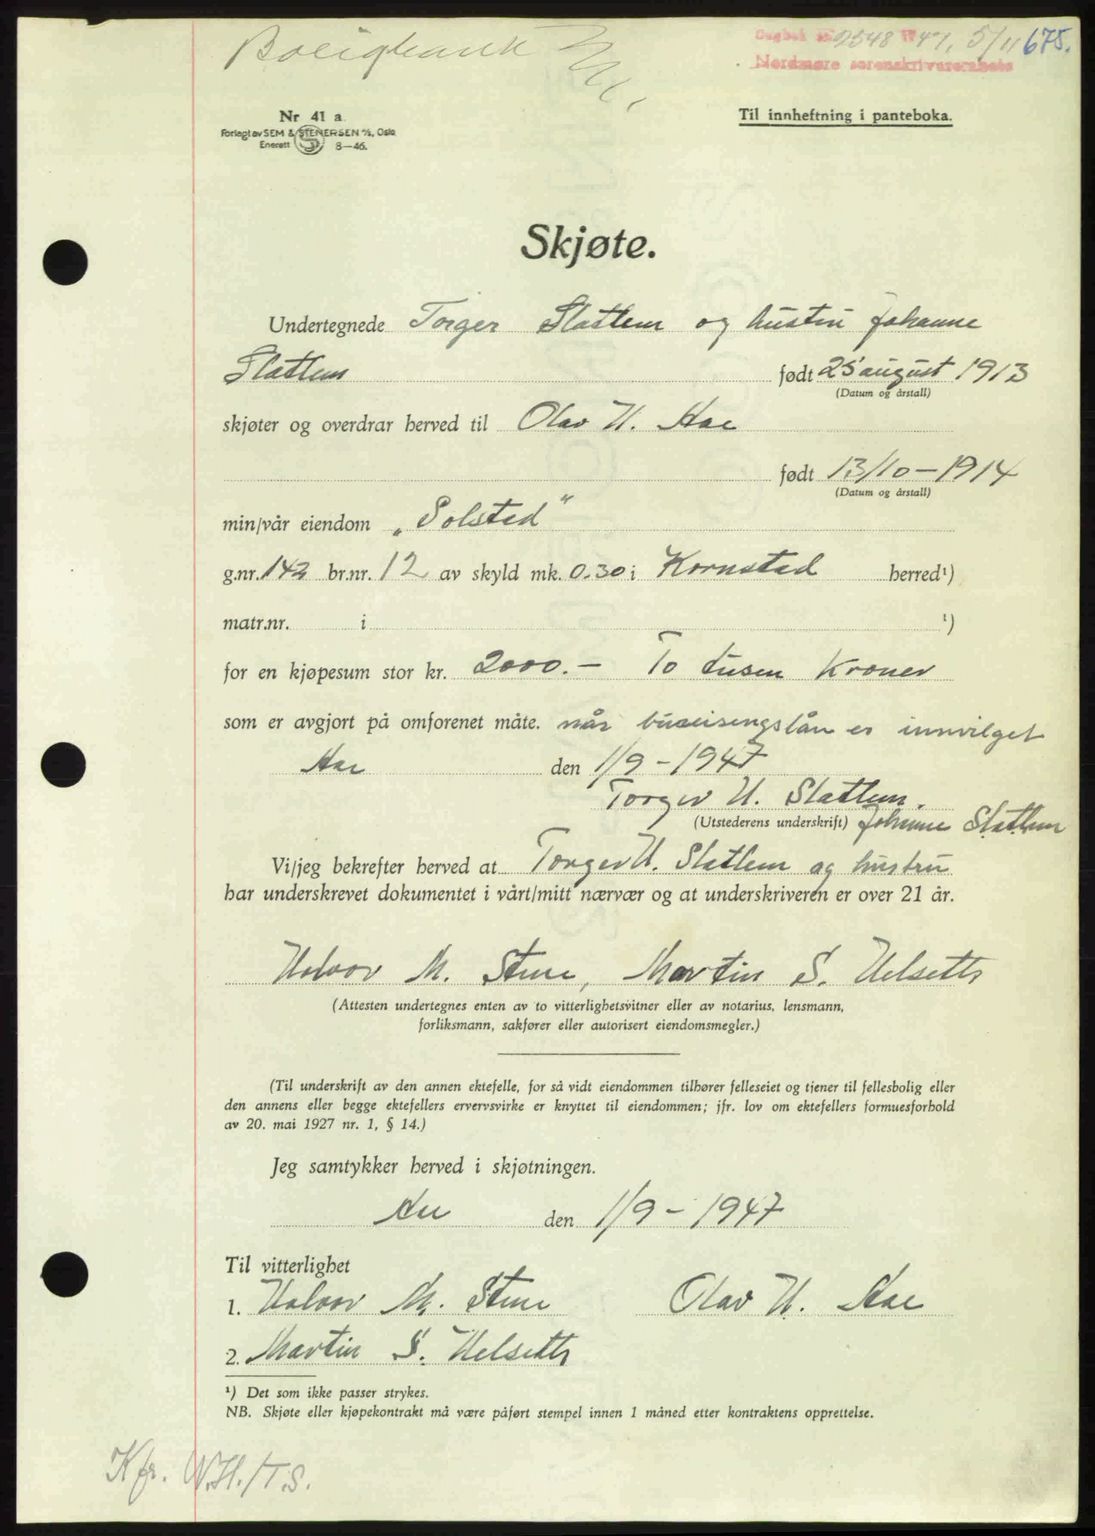 Boligbank
Dagbok nr. 2548 1947, 5/11 675.
Nordmøre sorenskriverembete
Nr 41 a.
Til innheftning i panteboka.
Forlagt av SEM & STENERSEN A/S, Oslo
Enerett S 8—46.
Skjøte.
Undertegnede Torger Slatlem og hustru Johanne
Slatlem født 25 august 1913
(Datum og årstall)
skjøter og overdrar herved til Olav H. Aae
født 13/10 - 1914
(Datum og årstall)
min/vår eiendom „Solstad"
g.nr. 142 br.nr. 12 av skyld mk. 0.30 i Kornstad herred¹)
matr.nr. i ¹)
for en kjøpesum stor kr. 2000.- To tusen Kroner
som er avgjort på omforenet måte. når bureisingslån er innvilget
Aae den 1/9 - 1947
Torger H. Slatlem.
(Utstederens underskrift) Johanne Slatlem
Vi/jeg bekrefter herved at Torger H. Slatlem og hustru
har underskrevet dokumentet i vårt/mitt nærvær og at underskriveren er over 21 år.
Halvor M. Stene, Martin S. Helseth
(Attesten undertegnes enten av to vitterlighetsvitner eller av notarius, lensmann,
forliksmann, sakfører eller autorisert eiendomsmegler.)
(Til underskrift av den annen ektefelle, for så vidt eiendommen tilhører felleseiet og tjener til fellesbolig eller
den annens eller begge ektefellers ervervsvirke er knyttet til eiendommen; jfr. lov om ektefellers formuesforhold
av 20. mai 1927 nr. 1, § 14.)
Jeg samtykker herved i skjøtningen.
Aae den 1/9 - 1947
Til vitterlighet
1. Halvor M. Stene Olav H. Aae
2. Martin S. Helseth
¹) Det som ikke passer strykes.
NB. Skjøte eller kjøpekontrakt må være påført stempel innen 1 måned etter kontraktens opprettelse.
Kfr. W.H./T.S.